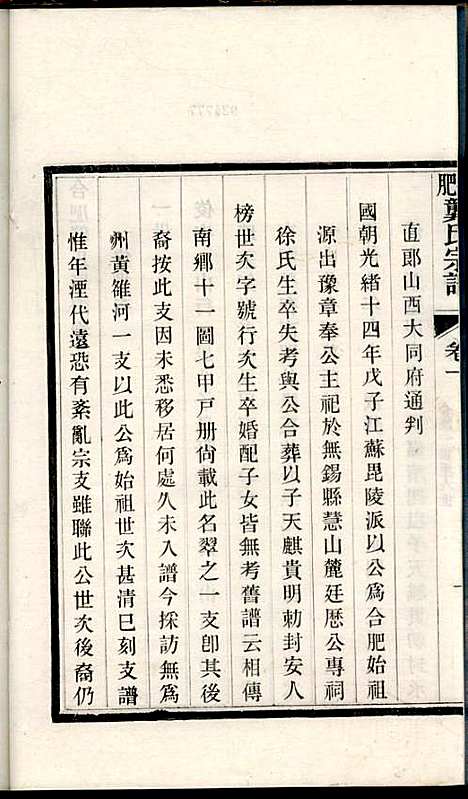 肥龔氏宗譜
卷一
直郞山西大同府通判
國朝光緖十四年戊子江蘇毘陵派以公爲合肥始祖
源出豫章奉公主祀於無錫縣慧山麓廷厯公專祠
徐氏生卒失考與公合葬以子天麒貴明勅封安人
榜世次字號行次生卒婚配子女皆無考舊譜云相傳
南鄉十一圖七甲戸册尙載此名翠之一支卽其後
裔按此支因未悉移居何處久未入譜今採訪無爲
州黃雒河一支以此公爲始祖世次甚清巳刻支譜
惟年湮代遠恐有紊亂宗支雖聯此公世次後裔仍